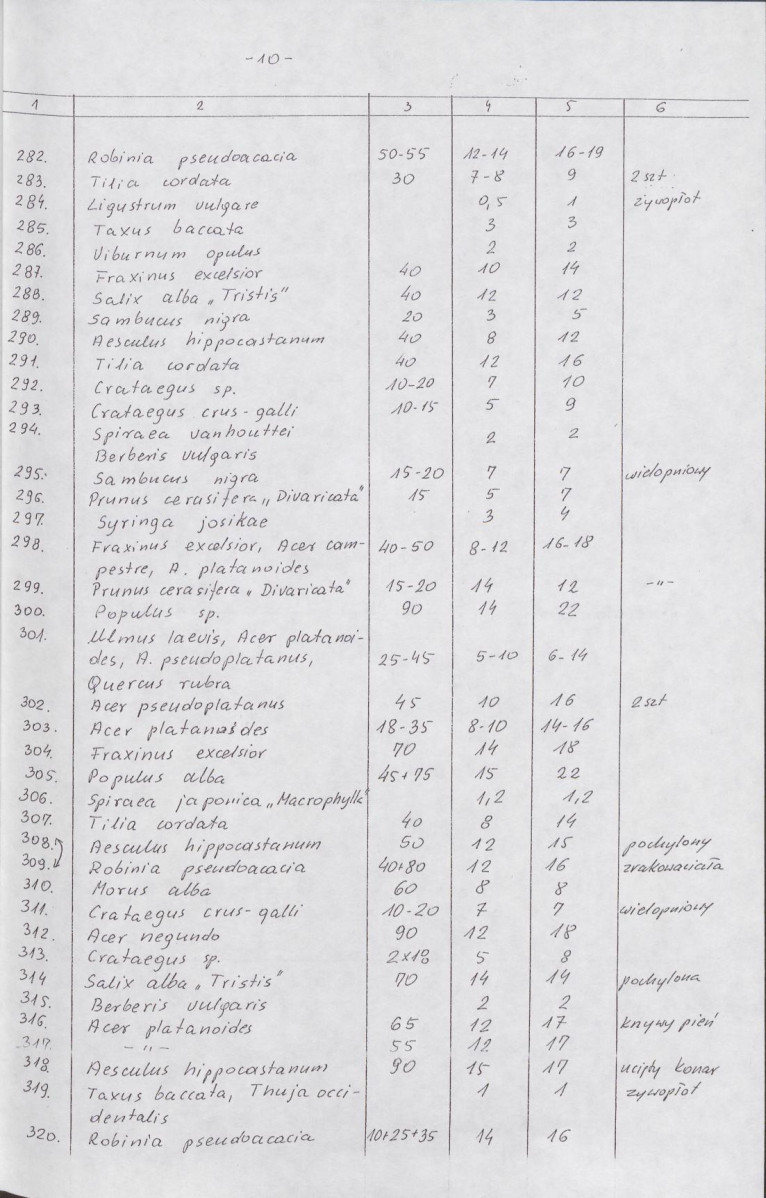 -10-
1 2 3 4 5 6
282. Robinia pseudoacacia 50-55 12-14 16-19
283. Tilia cordata 30 7-8 9 2 szt.
284. Ligustrum vulgare 0,5 1 żywopłot
285. Taxus baccata 3 3
286. Viburnum opulus 2 2
287. Fraxinus excelsior 40 10 14
288. Salix alba „Tristis" 40 12 12
289. Sambucus nigra 20 3 5
290. Aesculus hippocastanum 40 8 12
291. Tilia cordata 40 12 16
292. Crataegus sp. 10-20 7 10
293. Crataegus crus-galli 10-15 5 9
294. Spiraea vanhouttei 2 2
Berberis vulgaris
295. Sambucus nigra 15-20 7 7 wielopniowy
296. Prunus cerasifera „Divaricata" 15 5 7
297. Syringa josikae 3 4
298. Fraxinus excelsior, Acer cam- 40-50 8-12 16-18
pestre, A. platanoides
299. Prunus cerasifera „Divaricata" 15-20 14 12 -"-
300. Populus sp. 90 14 22
301. Ulmus laevis, Acer platanoi-
des, A. pseudoplatanus, 25-45 5-10 6-14
Quercus rubra
302. Acer pseudoplatanus 45 10 16 2 szt
303. Acer platanoides 18-35 8-10 14-16
304. Fraxinus excelsior 70 14 18
305. Populus alba 45+75 15 22
306. Spiraea japonica „Macrophylla" 1,2 1,2
307. Tilia cordata 40 8 14
308. Aesculus hippocastanum 50 12 15 pochylony
309. Robinia pseudoacacia 40+80 12 16 zrakowaciała
310. Morus alba 60 8 8
311. Crataegus crus-galli 10-20 7 7 wielopniowy
312. Acer negundo 90 12 18
313. Crataegus sp. 2x18 5 8
314 Salix alba „Tristis" 70 14 14 pochylona
315. Berberis vulgaris 2 2
316. Acer platanoides 65 12 17 krzywy pień
317. -"- 55 12 17
318. Aesculus hippocastanum 90 15 17 ucięty konar
319. Taxus baccata, Thuja occi- 1 1 żywopłot
dentalis
320. Robinia pseudoacacia 10+25+35 14 16